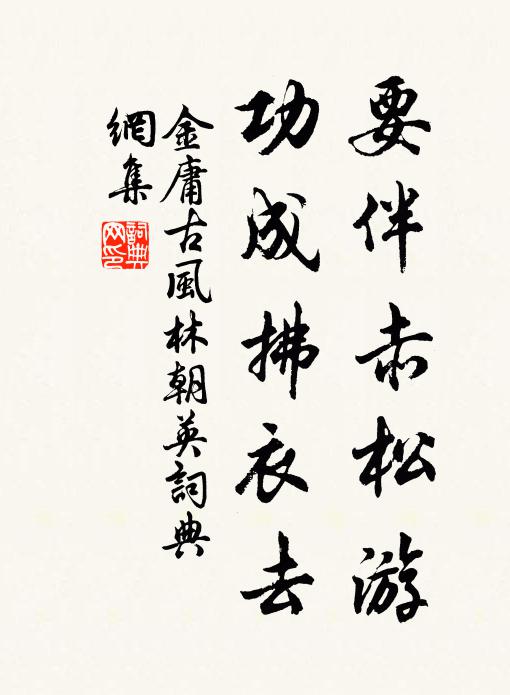 要伴赤松游
功成拂衣去
金庸古風林朝英詞典
網集
詞典
网印